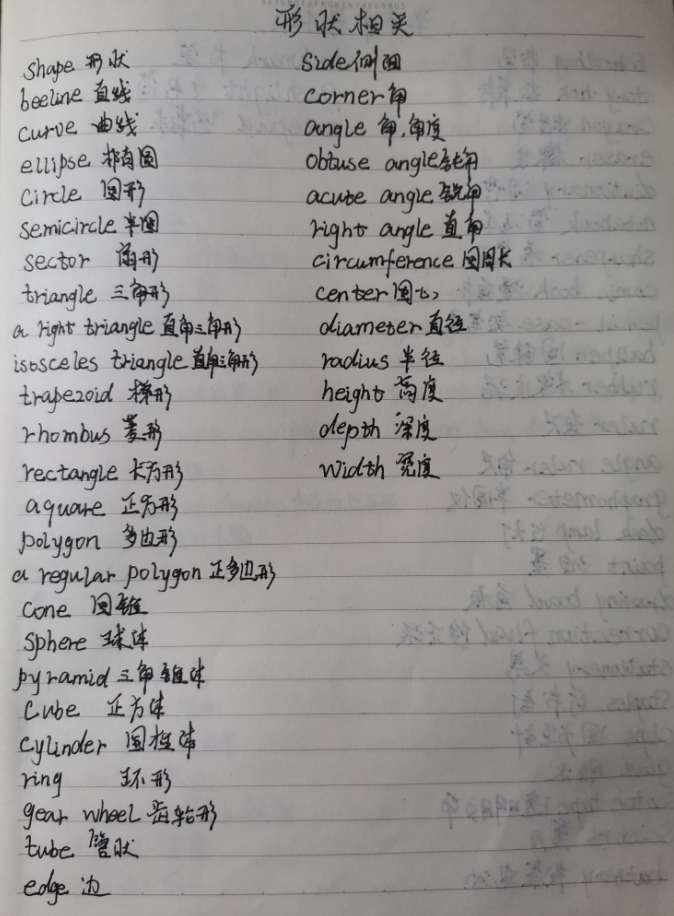 形状相关
shape 形状
beeline 直线
curve 曲线
ellipse 椭圆
circle 圆形
semicircle 半圆
sector 扇形
triangle 三角形
a right triangle 直角三角形
isosceles triangle 直角三角形
trapezoid 梯形
rhombus 菱形
rectangle 长方形
aquare 正方形
polygon 多边形
a regular polygon 正多边形
cone 圆锥
sphere 球体
pyramid 三角锥体
cube 正方体
cylinder 圆柱体
ring 环形
gear wheel 齿轮形
tube 管状
edge 边
side 侧面
corner 角
angle 角,角度
obtuse angle 钝角
acute angle 锐角
right angle 直角
circumference 圆周长
center 圆心
diameter 直径
radius 半径
height 高度
depth 深度
width 宽度